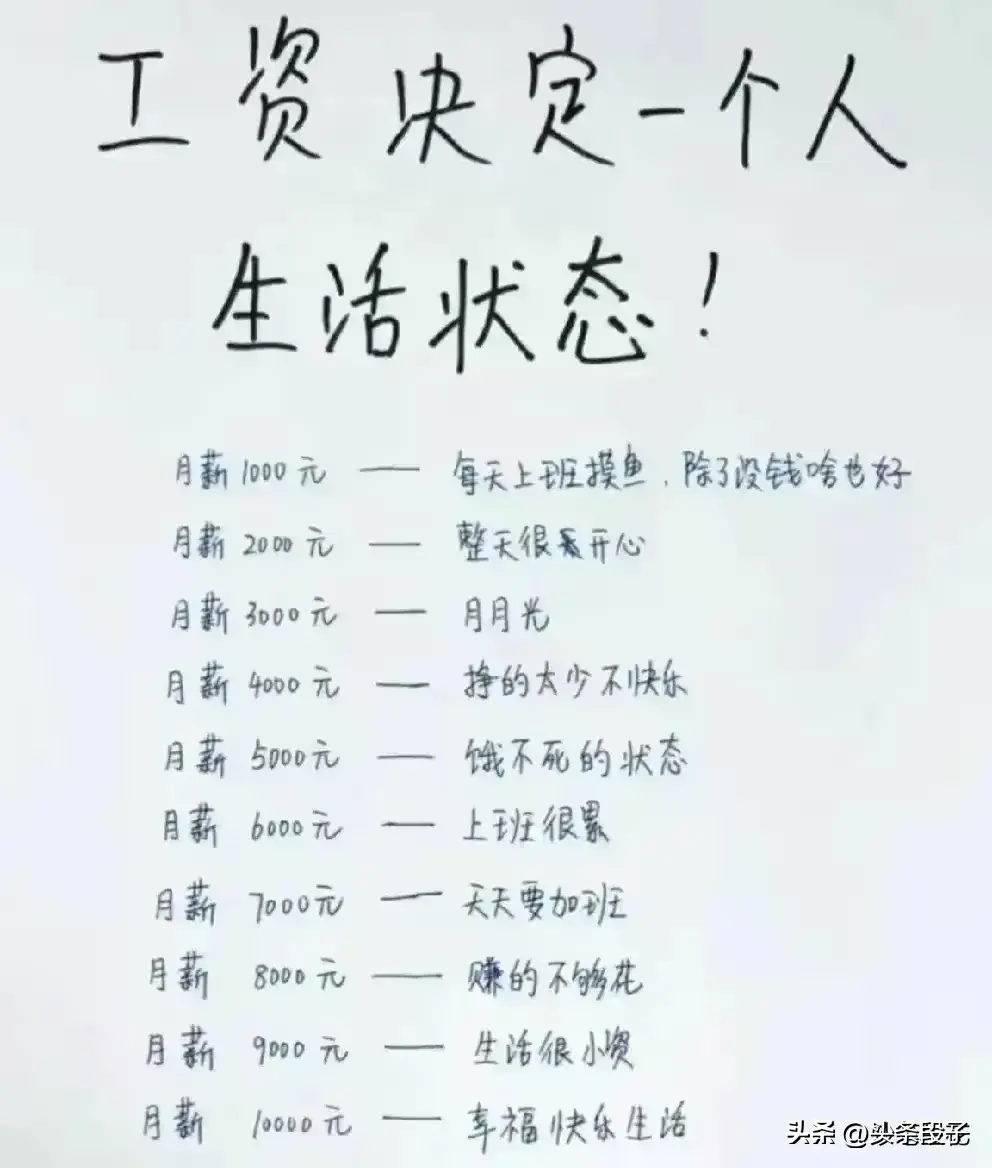 工资决定一个人
生活状态！
月薪1000元——每天上班摸鱼，除了没钱啥也好
月薪2000元——整天很开心
月薪3000元——月月光
月薪4000元——挣的太少不快乐
月薪5000元——饿不死的状态
月薪6000元——上班很累
月薪7000元——天天要加班
月薪8000元——赚的不够花
月薪9000元——生活很小资
月薪10000元——幸福快乐生活
头条 @